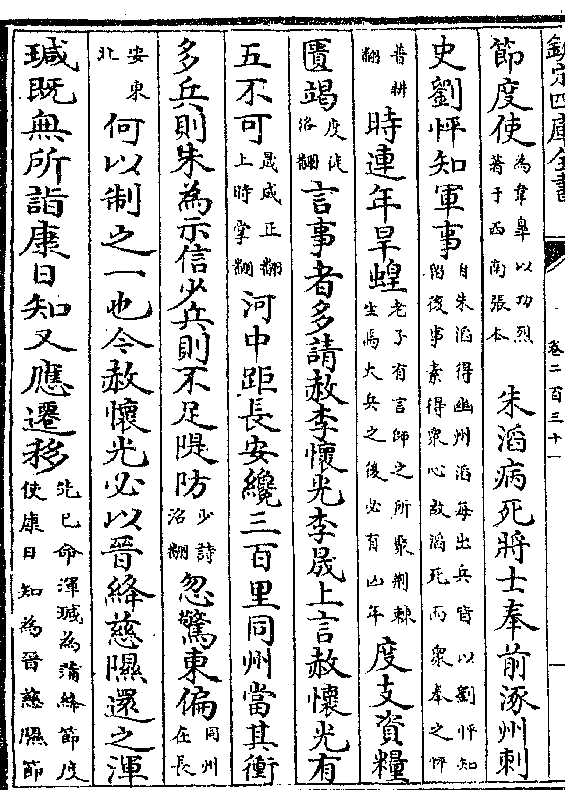 欽定四庫全書
卷二百三十一
節度使為韋臯以功烈著于西南張本朱滔病死將士奉前涿州刺
史劉怦知軍事自朱滔得幽州滔每出兵皆以劉怦知留後事素得衆心故滔死而衆奉之怦
普耕翻時連年旱蝗老子有言師之所聚荆棘生焉大兵之後必有凶年度支資糧
匱竭度徒洛翻言事者多請赦李懷光李晟上言赦懷光有
五不可晟成正翻上時掌翻河中距長安纔三百里同州當其衝
多兵則未為示信少兵則不足隄防少詩沼翻忽驚東偏同州在長
安東北何以制之一也今赦懷光必以晉絳慈隰還之渾
瑊既無所詣康日知又應遷移先已命渾瑊為蒲絳節度使康日知為晉慈隰節